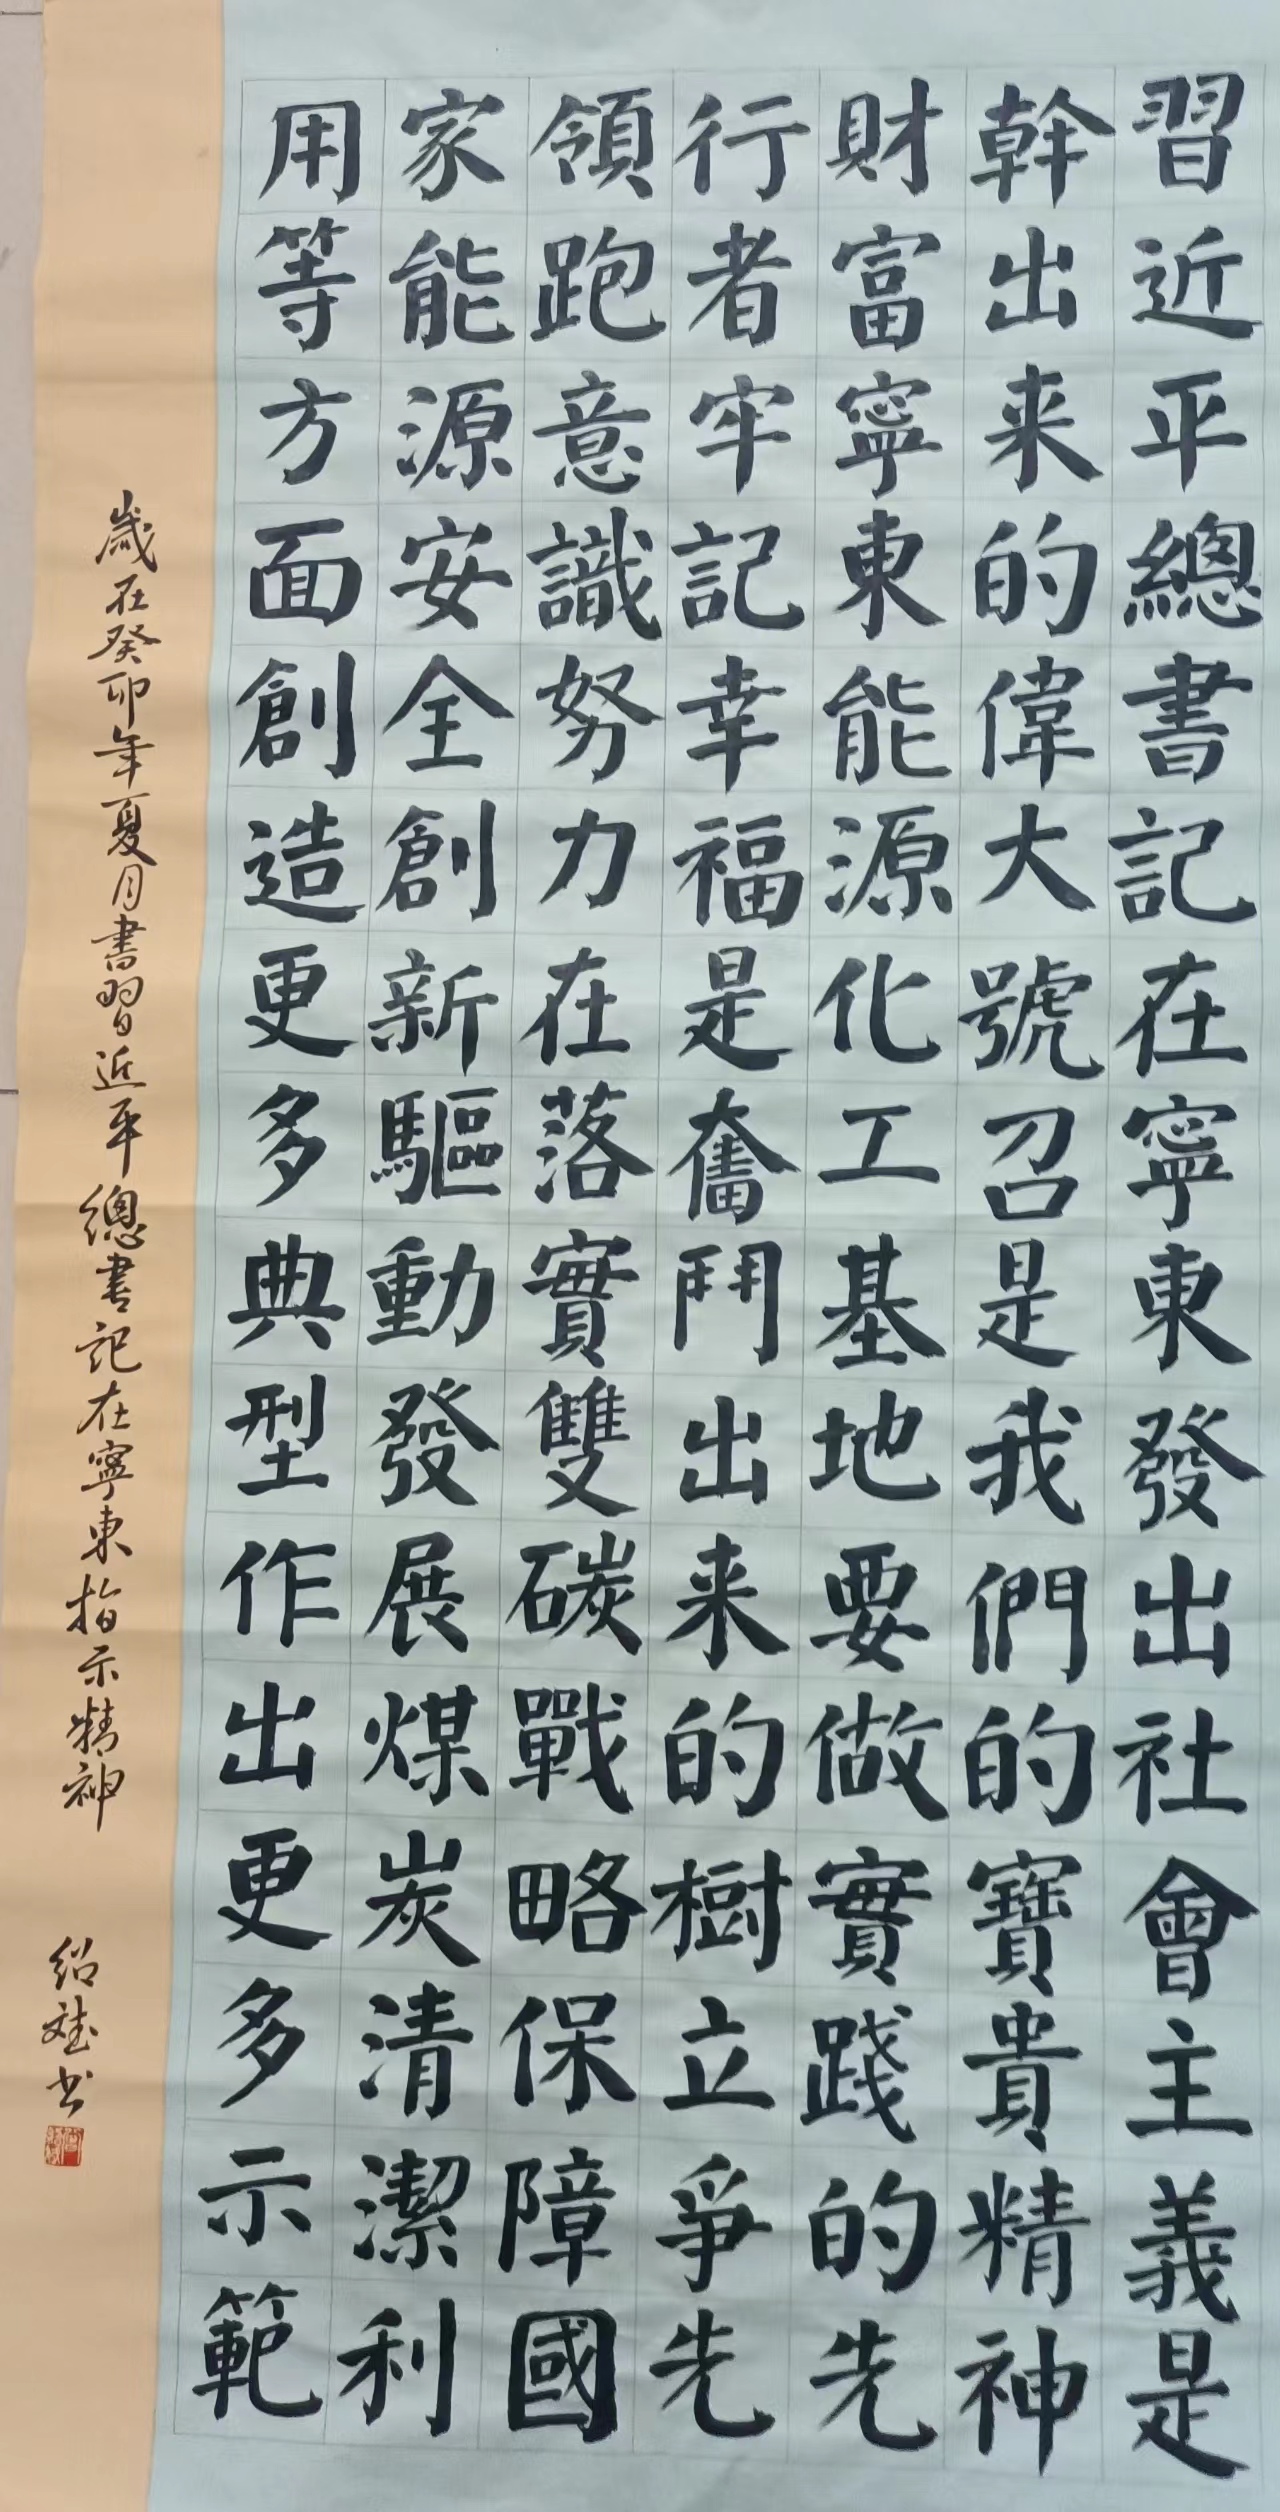 習近平總書記在寧東發出社會主義是
幹出来的偉大號召是我們的寶貴精神
財富寧東能源化工基地要做實踐的先
行者牢記幸福是奮鬥出来的樹立爭先
領跑意識努力在落實雙碳戰略保障國
家能源安全創新驅動發展煤炭清潔利
用等方面創造更多典型作出更多示範
歲在癸卯年夏月書習近平總書記在寧東指示精神
绍斌书